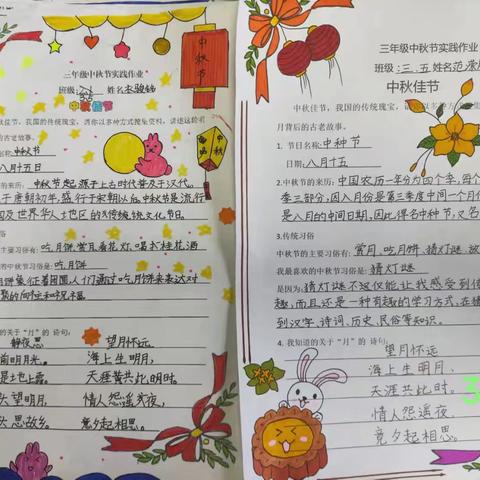 中秋节
三年级中秋节实践作业
班级:三.5 姓名
中秋佳节
秋佳节,我国的传统瑰宝,请你以多种方式搜集资料,讲述这轮明
的古老故事。
名称:中秋节
八月十五日
的来历:中秋节起源于上古时代普及于汉代。
于唐朝初年,盛行于宋朝以后。中秋节是流行
国及世界华人土区的传统文化节日。
主要习俗有:吃月饼、赏月、看花灯、喝桂花酒
的中秋节习俗是:吃月饼
月饼象征着团圆,人们通过吃月饼来表达对
的向往和祝福。
的关于“月”的 诗句:
静夜思
前明月光。
是地上霜。
头望明月,
头思故乡。
望月怀远
海上生明月,
天涯共此时。
情人怨遥夜,
竟夕起相思。
中秋
三年级中秋节实践作业
班级:三.五 姓名:范
中秋佳节
中秋佳节,我国的传统瑰宝,请你以多种方
月背后的古老故事。
1. 节日名称:中种节
日期:八月十五
2.中秋节的来历:中国农历一年分为四个季,每个
季三部分,因八月份是第三季度中间一个月份
是八月的中间日期,因此得名中种节,又名
3.传统习俗
中秋节的主要习俗有:赏月、吃月饼、猜灯谜、
我最喜欢的中秋节习俗是:猜灯谜
是因为:猜灯谜不仅仅能让我感受到
趣,而且还是一种有趣的学习方式,在
到汉字、诗词、历史、民俗等知识。
4. 我知道的关于“月”的 诗句:
望月怀远
海上生明月,
天涯共此时。
情人怨遥夜,
竟夕起相思。
3